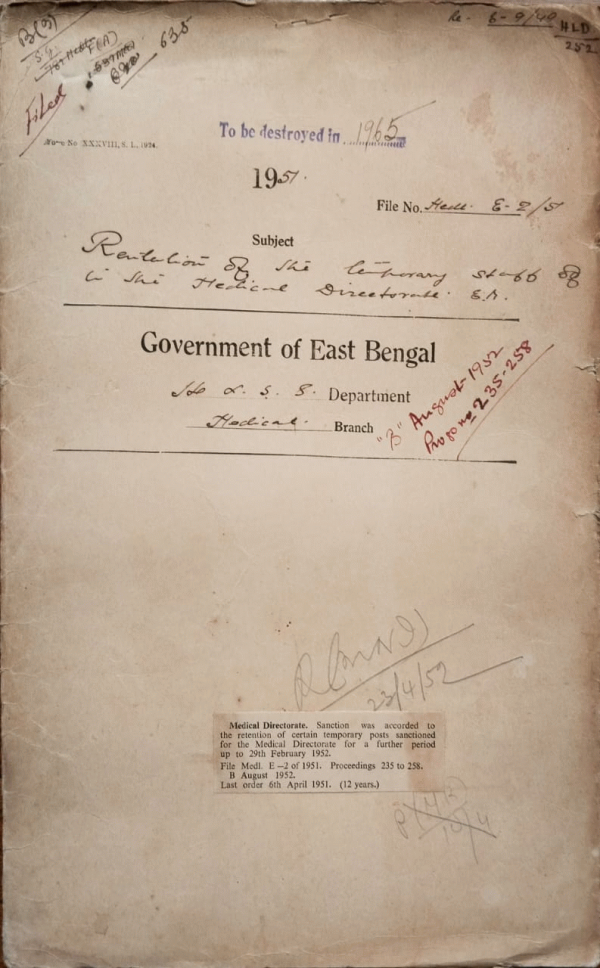 B(3)
635
Filed
HLD
252
Form No XXXVIII, S. L., 1924.
To be destroyed in 1965
1951.
File No. Medl. E-2/51
Subject
Retention of the temporary staff of
in the Medical Directorate. E.B.
Government of East Bengal
H & L. S. G. Department
Medical. Branch
"B" August 1952
Progs nos 235-258
23/4/52
Medical Directorate. Sanction was accorded to
the retention of certain temporary posts sanctioned
for the Medical Directorate for a further period
up to 29th February 1952.
File Medl. E—2 of 1951. Proceedings 235 to 258.
B August 1952.
Last order 6th April 1951. (12 years.)